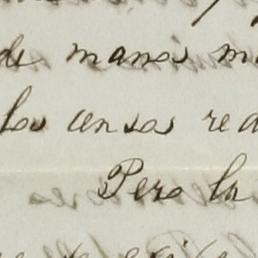 de manos m
los censos red
Pero la